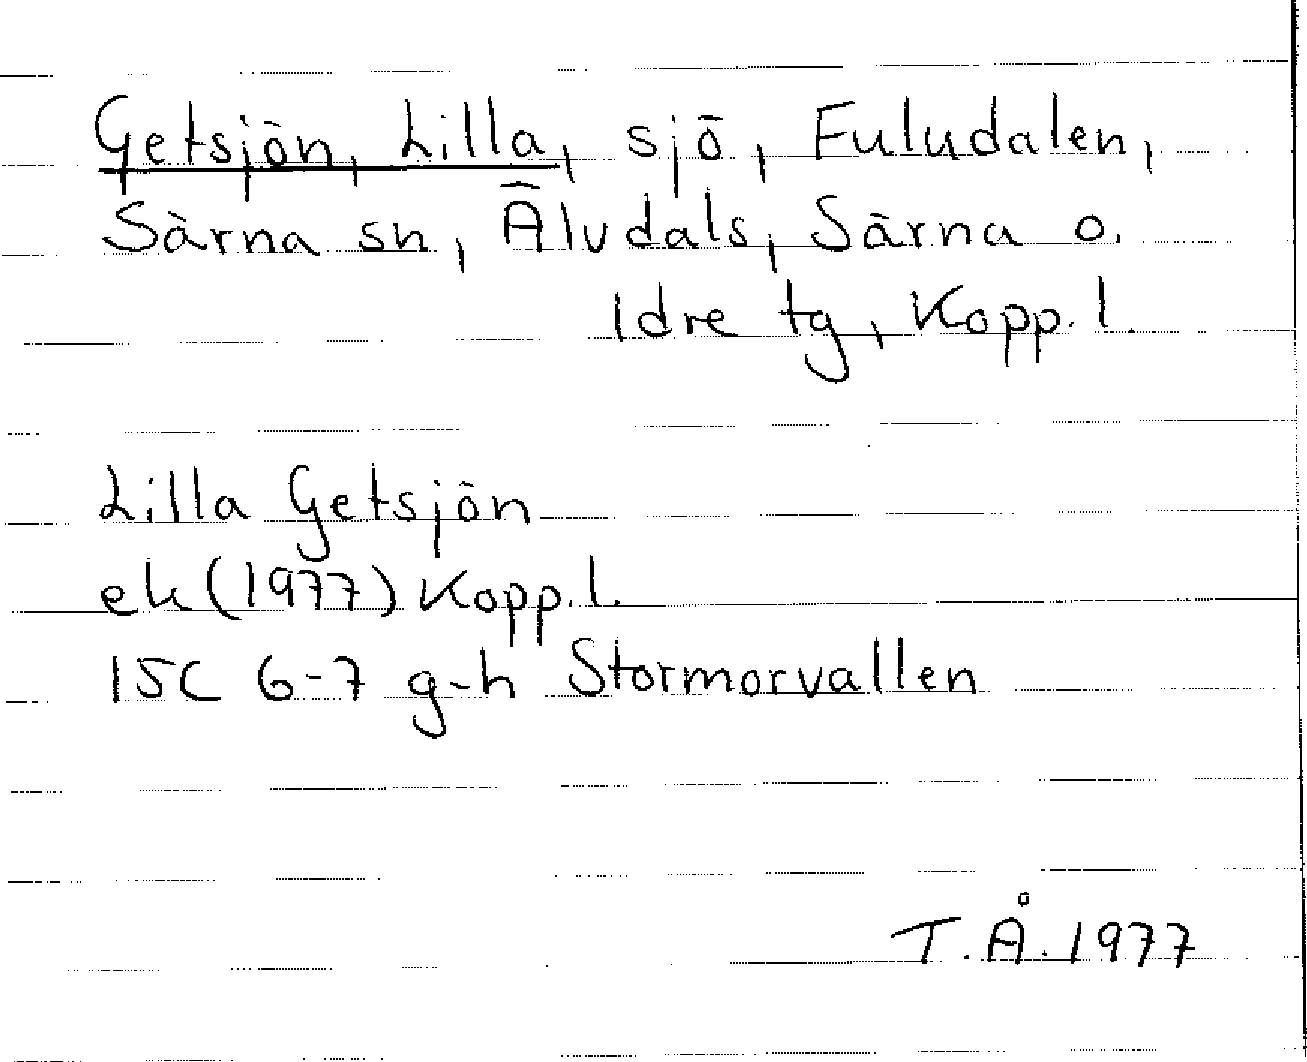 Getsjön, Lilla, sjö, Fuludalen,
Särna sn, Älvdals, Särna o.
Idre tg, Kopp. l.
Lilla Getsjön
ek (1977) Kopp. l.
15C 6-7 g-h Stormorvallen
T.Å. 1977